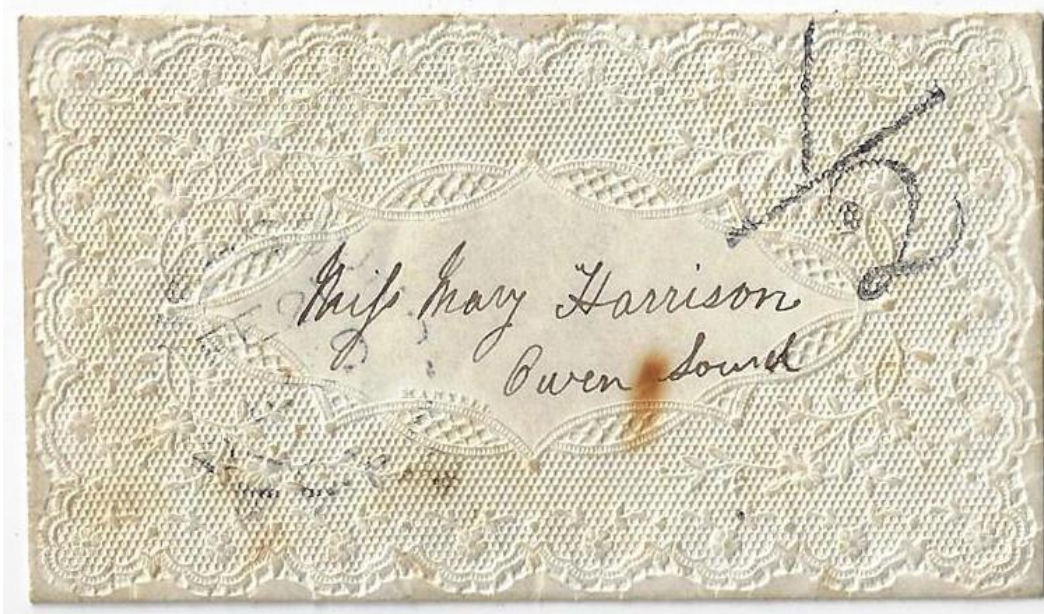 ½
Miſs Mary Harrison
Owen Sound